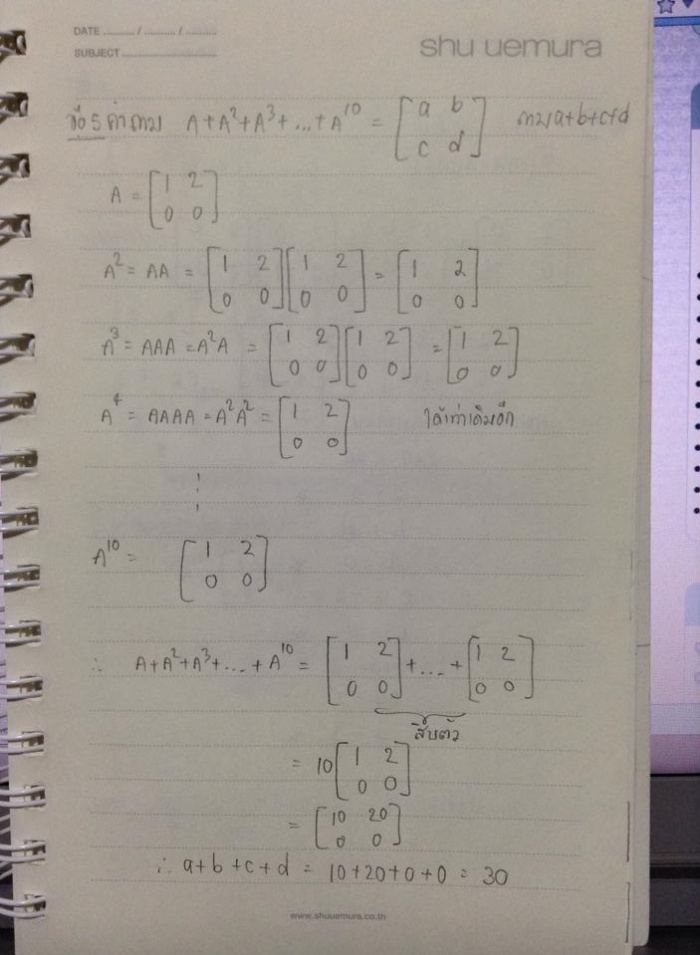 DATE ........../........../..........
shu uemura
SUBJECT..............................
ข้อ 5 คำถาม A+A²+A³+...+A¹⁰ = [a b; c d] ถาม a+b+c+d
A = [1 2; 0 0]
A² = AA = [1 2; 0 0][1 2; 0 0] = [1 2; 0 0]
A³ = AAA = A²A = [1 2; 0 0][1 2; 0 0] = [1 2; 0 0]
A⁴ = AAAA = A²A² = [1 2; 0 0] ได้เท่าเดิมอีก
⋮
A¹⁰ = [1 2; 0 0]
∴ A+A²+A³+....+A¹⁰ = [1 2; 0 0]+....+[1 2; 0 0]
สิบตัว
= 10[1 2; 0 0]
= [10 20; 0 0]
∴ a+b+c+d = 10+20+0+0 = 30
www.shuuemura.co.th